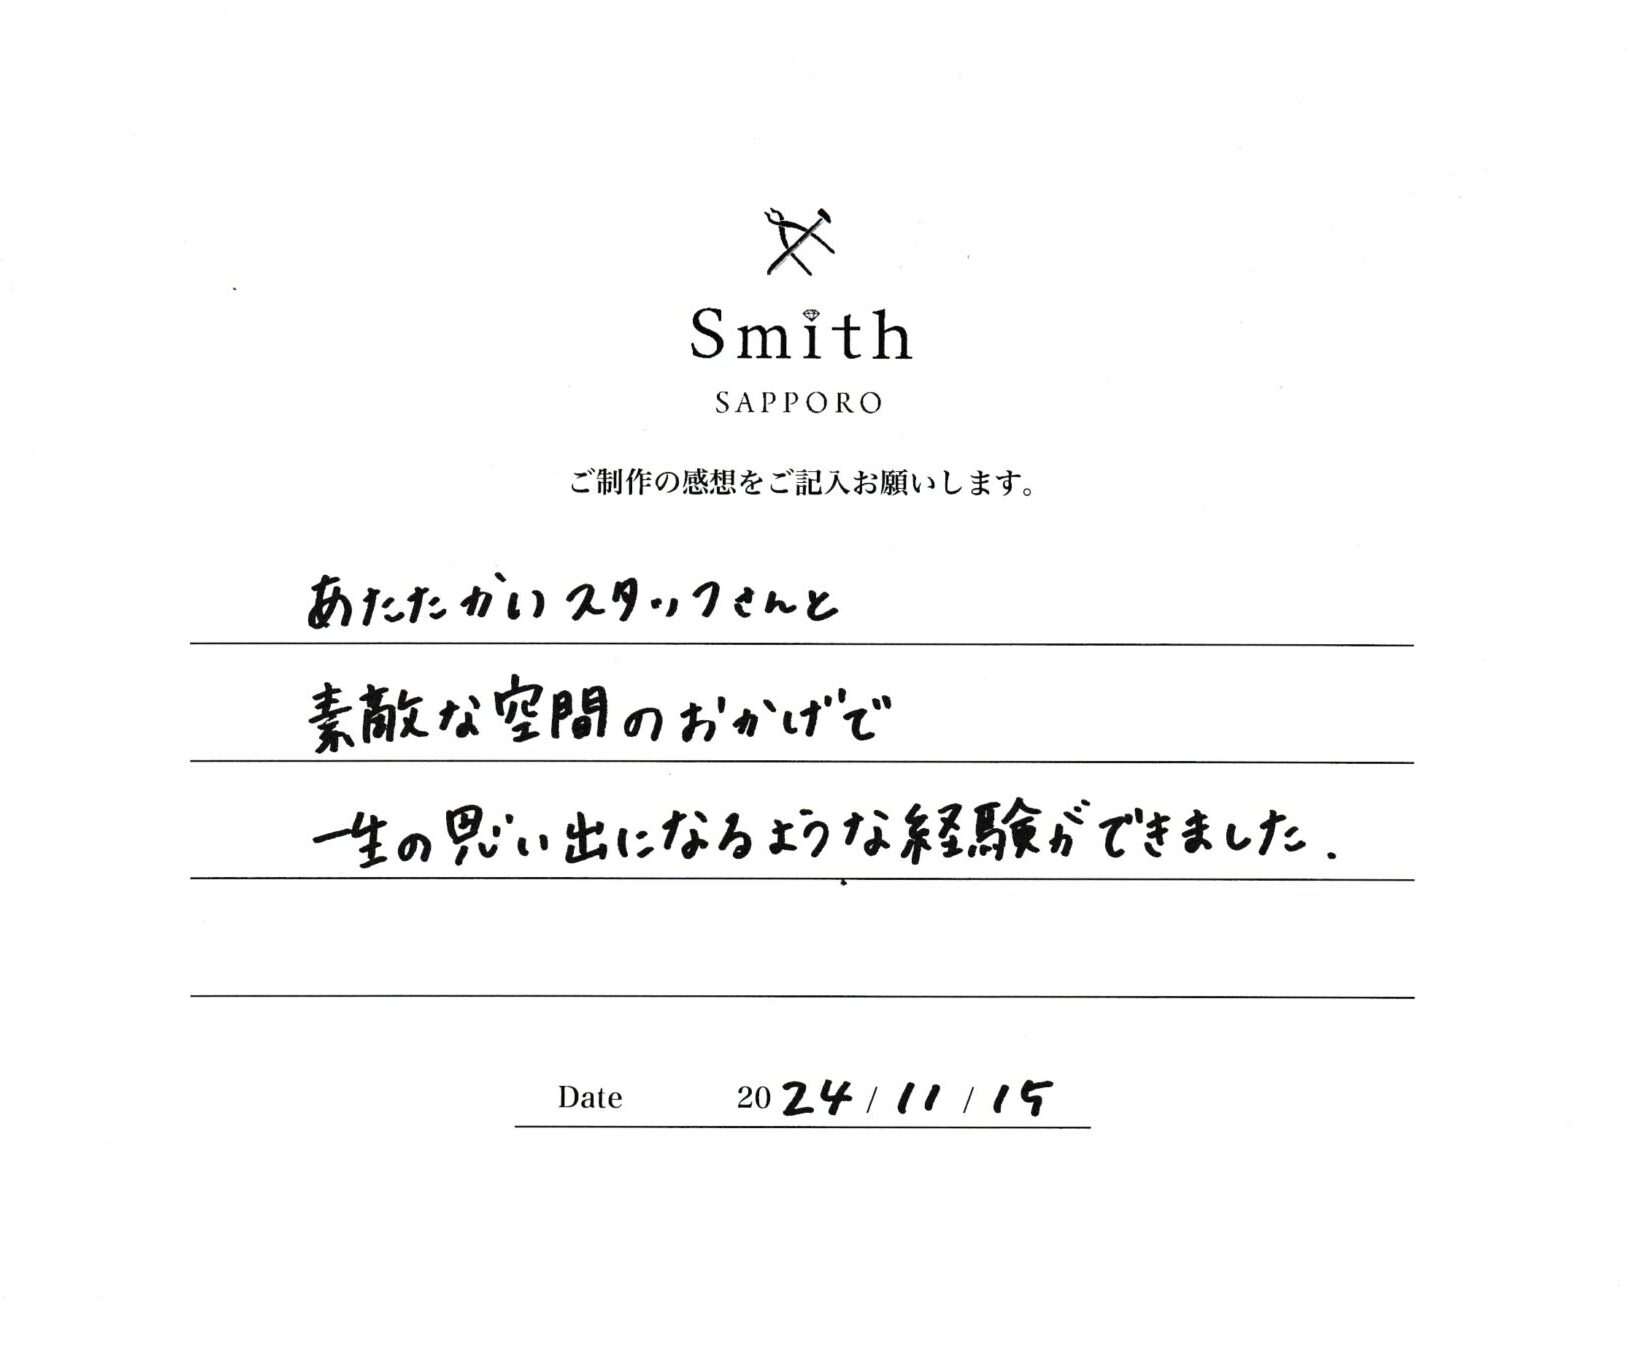 Smith
SAPPORO
ご制作の感想をご記入お願いします。
あたたかいスタッフさんと
素敵な空間のおかげで
一生の思い出になるような経験ができました.
Date 2024/11/15